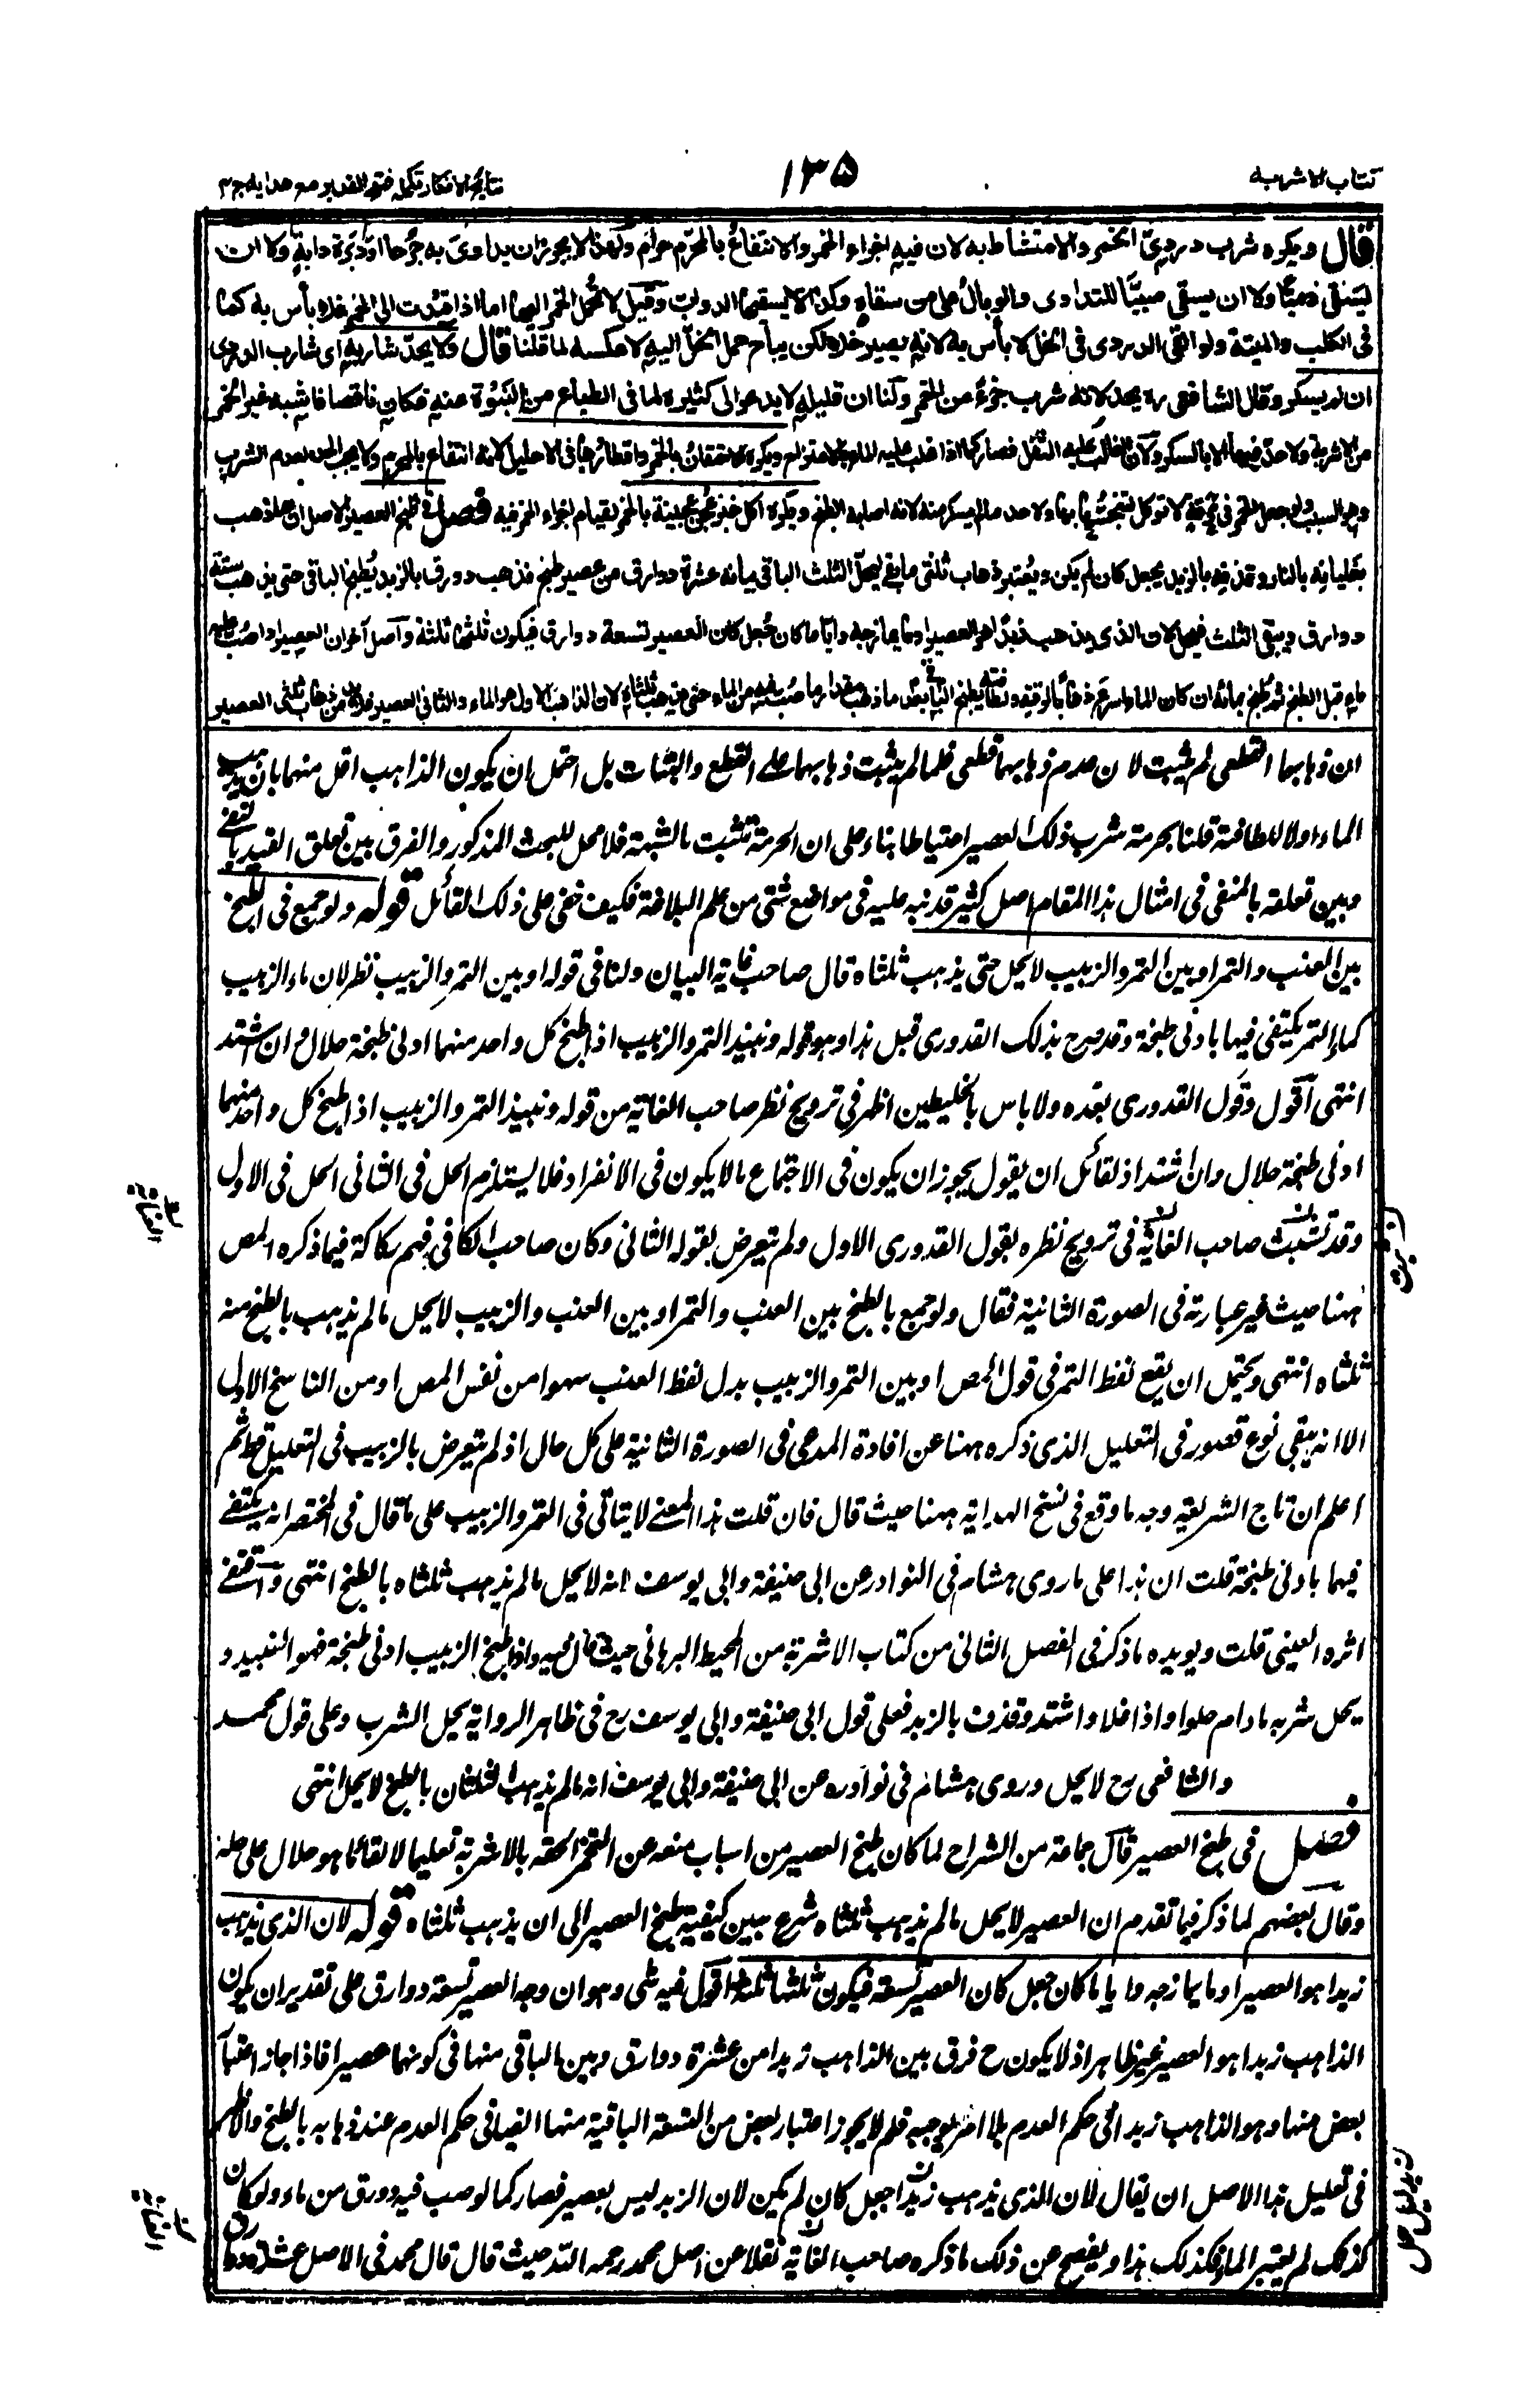 كتاب الاشربة
١٣٥
نتائج الافكار تكملة فتح القدير مع هدايه ج ٣
قال ويكره شرب دردي الخمر والامتشاط به لان فيه اجزاء الخمر والانتفاع بالمحرم حرام ولهذا لا يجوز ان يداوى به جرحا او دبرة دابة ولا ان
يسقى ذميا ولا ان يسقى صبيا للتداوى والوبال على من سقاه وكذا لا يسقيها الدواب وقيل لا تحمل الخمر اليها اما اذا قيدت الى الخمر فلا بأس به كما
فى الكلب والميتة ولو القى الدردى فى الخل لا بأس به لانه يصير خلا لكن يباح حمل الخل اليه لا عكسه لما قلنا قال ولا يحد شاربه اى شارب الدردى
ان لم يسكر وقال الشافعى رح يحد لانه شرب جزء من الخمر ولنا ان قليله لا يدعو الى كثيره لما فى الطباع من النبوة عنه فكان ناقصا فاشبه غير الخمر
من الاشربة ولا حد فيها الا بالسكر ولان الغالب عليه الثفل فصار كما اذا غلب عليه الماء بالامتزاج ويكره الاحتقان بالخمر واقطارها فى الاحليل لانه انتفاع بالمحرم ولا يجب الحد لعدم الشرب
وهو السبب ولو جعل الخمر فى مرقة لا توكل لتنجسها بها ولا حد ما لم يسكر منه لانه اصابه الطبخ ويكره اكل خبز عجن عجينه بالخمر لقيام اجزاء الخمر فيه فصل فى طبخ العصير الاصل ان ما ذهب
بغليانه بالنار وقذفه بالزبد يجعل كان لم يكن ويعتبر ذهاب ثلثى ما بقى ليحل الثلث الباقى بيانه عشرة دوارق من عصير طبخ فذهب دورق بالزبد يطبخ الباقى حتى يذهب ستة
دوارق ويبقى الثلث فيحل لان الذى يذهب زبدا هو العصير او ما يمازجه وايا ما كان جعل كان العصير تسعة دوارق فيكون ثلثها ثلثة واصل آخر ان العصير اذا صب عليه
ماء قبل الطبخ ثم طبخ بمائه ان كان الماء اسرع ذهابا لرقته ولطافته يطبخ الباقى بعد ما ذهب مقدار ما صب فيه من الماء حتى يذهب ثلثاه لان الذاهب الاول هو الماء والثانى العصير فلا بد من ذهاب ثلثى العصير
ان ذهابهما القطعى لم يثبت لا ن عدم ذهابهما قطعى فلما لم يثبت ذهابهما على القطع والبتات بل احتمل ان يكون الذاهب اقل منهما بان يذهب
الماء اولا للطافته قلنا بحرمة شرب ذلك العصير احتياطا بناء على ان الحرمة تثبت بالشبهة فلا محل للبحث المذكور والفرق بين تعلق القيد بالنفى
وبين تعلقه بالمنفى فى امثال هذا المقام اصل كثير قد نبه عليه فى مواضع شتى من علم البلاغة فكيف خفى على ذلك القائل قوله ولو جمع فى الطبخ
بين العنب والتمر او بين التمر والزبيب لا يحل حتى يذهب ثلثاه قال صاحب غاية البيان ولنا فى قوله او بين التمر والزبيب نظر لان ماء الزبيب
كماء التمر يكتفى فيها بادنى طبخة وقد صرح بذلك القدورى قبل هذا وهو قوله ونبيذ التمر والزبيب اذا طبخ كل واحد منهما ادنى طبخة حلال وان اشتد
انتهى اقول وقول القدورى بعده ولا باس بالخليطين اظهر فى ترويج نظر صاحب الغاية من قوله ونبيذ التمر والزبيب اذا طبخ كل واحد منهما
ادنى طبخة حلال وان اشتد اذ لقائل ان يقول يجوز ان يكون فى الاجتماع مالا يكون فى الانفراد فلا يستلزم الحل فى الثانى الحل فى الاول
وقد تشبث صاحب الغاية فى ترويج نظره بقول القدورى الاول ولم يتعرض لقوله الثانى وكان صاحب الكافى فهم ركاكة فيما ذكره المص
ههنا حيث غير عبارته فى الصورة الثانية فقال ولو جمع بالطبخ بين العنب والتمر او بين العنب والزبيب لا يحل مالم يذهب بالطبخ منه
ثلثاه انتهى ويحتمل ان يقع لفظ التمر فى قول المص او بين التمر والزبيب بدل لفظ العنب سهوا من نفس المص او من الناسخ الاول
الا انه يبقى نوع قصور فى التعليل الذى ذكره ههنا عن افادة المدعى فى الصورة الثانية على كل حال اذ لم يتعرض بالزبيب فى التعليل قط ثم
اعلم ان تاج الشريعة وجه ما وقع فى نسخ الهداية ههنا حيث قال فان قلت هذا المعنى لا يتأتى فى التمر والزبيب على ما قال فى المختصر انه يكتفى
فيهما بادنى طبخة قلت ان هذا على ما روى هشام فى النوادر عن ابى حنيفة وابى يوسف انه لا يحل مالم يذهب ثلثاه بالطبخ انتهى واقتفى
اثره العينى قلت ويويده ما ذكر فى الفصل الثانى من كتاب الاشربة من المحيط البرهانى حيث قال فيه واذا طبخ الزبيب ادنى طبخة فهو النبيذ و
يحل شربه مادام حلوا واذا غلا واشتد وقذف بالزبد فعلى قول ابى حنيفة وابى يوسف رح فى ظاهر الرواية يحل الشرب وعلى قول محمد
والشافعى رح لا يحل وروى هشام فى نوادره عن ابى حنيفة وابى يوسف انه مالم يذهب الثلثان بالطبخ لا يحل انتهى
فصل فى طبخ العصير قال جماعة من الشراح لما كان طبخ العصير من اسباب منعه عن التخمر الحقه بالاشربة تعليما لابقاء ما هو حلال على حله
وقال بعضهم لما ذكر فيما تقدم ان العصير لا يحل مالم يذهب ثلثاه شرع يبين كيفية طبخ العصير الى ان يذهب ثلثاه قوله لان الذى يذهب
زبدا هو العصير او ما يمازجه وايا ما كان جعل كان العصير تسعة فيكون ثلثها ثلثة اقول فيه شى وهو ان وجه العصير تسعة دوارق على تقدير ان يكون
الذاهب زبدا هو العصير غير ظاهر اذ لا يكون ح فرق بين الذاهب زبدا من عشرة دوارق وبين الباقى منها فى كونهما عصيرا فاذا جاز اعتبار
بعض منها وهو الذاهب زبدا فى حكم العدم بلا امر يوجبه فلم لا يجوز اعتبار بعض من التسعة الباقية منها ايضا فى حكم العدم عند ذهابه بالطبخ والاظهر
فى تعليل هذا الاصل ان يقال لان الذى يذهب زبدا جعل كان لم يكن لان الزبد ليس بعصير فصار كما لو صب فيه دورق من ماء ولو كان
كذلك لم يعتبر الماء فكذلك هذا ويفصح عن ذلك ما ذكره صاحب الغاية نقلا عن اصل محمد رحمه الله حيث قال قال محمد فى الاصل عشرة دورق